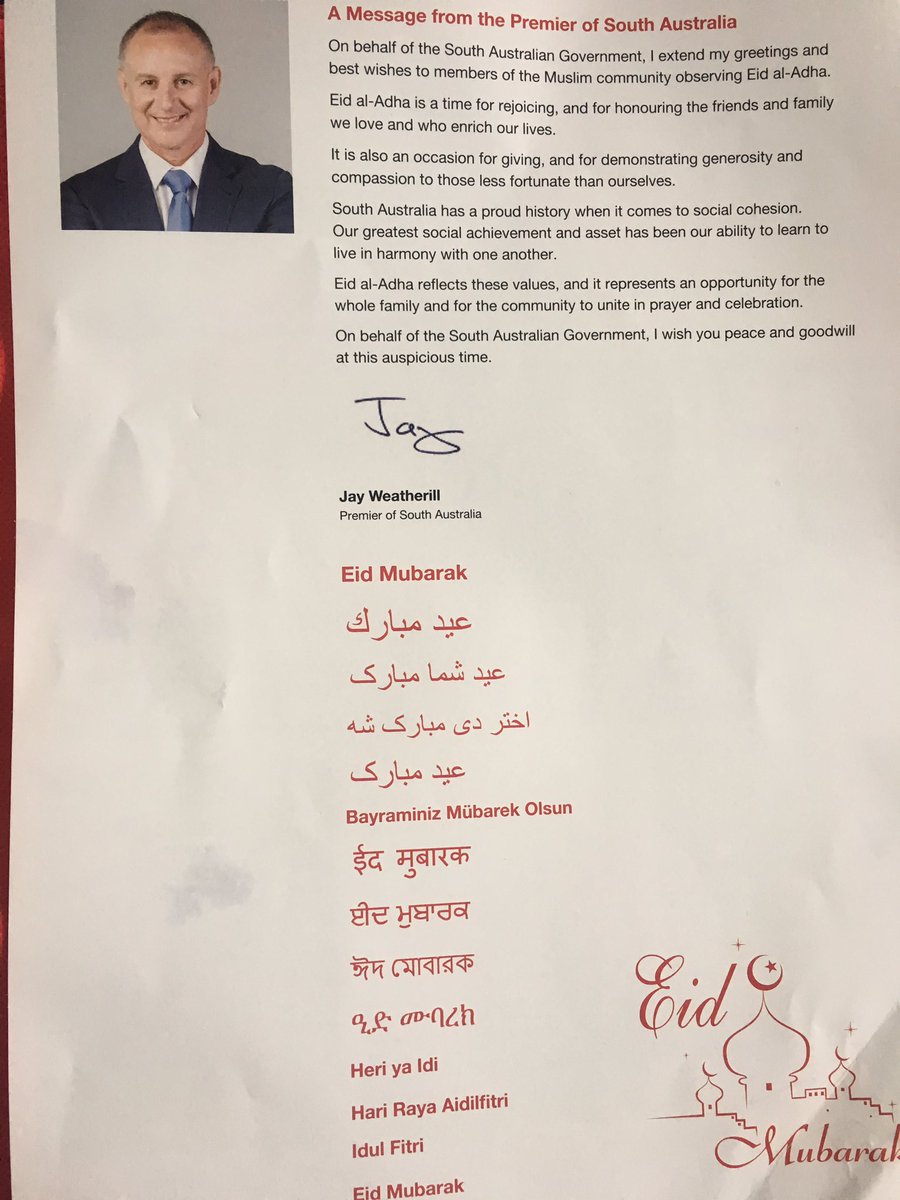 A Message from the Premier of South Australia
On behalf of the South Australian Government, I extend my greetings and
best wishes to members of the Muslim community observing Eid al-Adha.
Eid al-Adha is a time for rejoicing, and for honouring the friends and family
we love and who enrich our lives.
It is also an occasion for giving, and for demonstrating generosity and
compassion to those less fortunate than ourselves.
South Australia has a proud history when it comes to social cohesion.
Our greatest social achievement and asset has been our ability to learn to
live in harmony with one another.
Eid al-Adha reflects these values, and it represents an opportunity for the
whole family and for the community to unite in prayer and celebration.
On behalf of the South Australian Government, I wish you peace and goodwill
at this auspicious time.
Jay
Jay Weatherill
Premier of South Australia
Eid Mubarak
عيد مبارك
عید شما مبارک
اختر دی مبارک شه
عید مبارک
Bayraminiz Mübarek Olsun
ईद मुबारक
ਈਦ ਮੁਬਾਰਕ
ঈদ মোবারক
ዒድ ሙባረክ
Heri ya Idi
Hari Raya Aidilfitri
Idul Fitri
Eid Mubarak
Eid
Mubarak